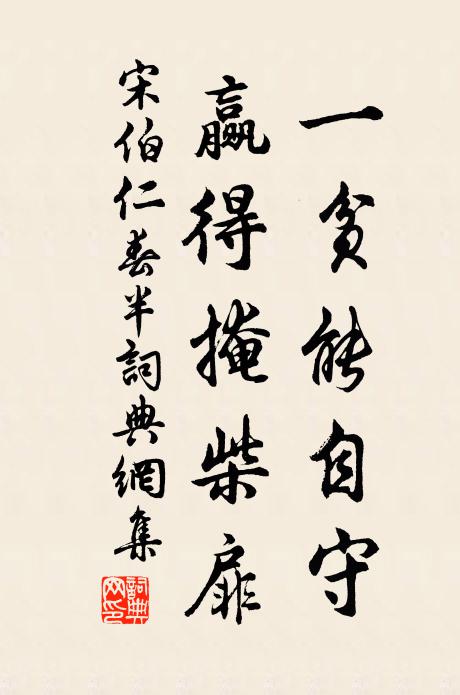 一貧能自守
贏得掩柴扉
宋伯仁春半詞典網集
詞典網印